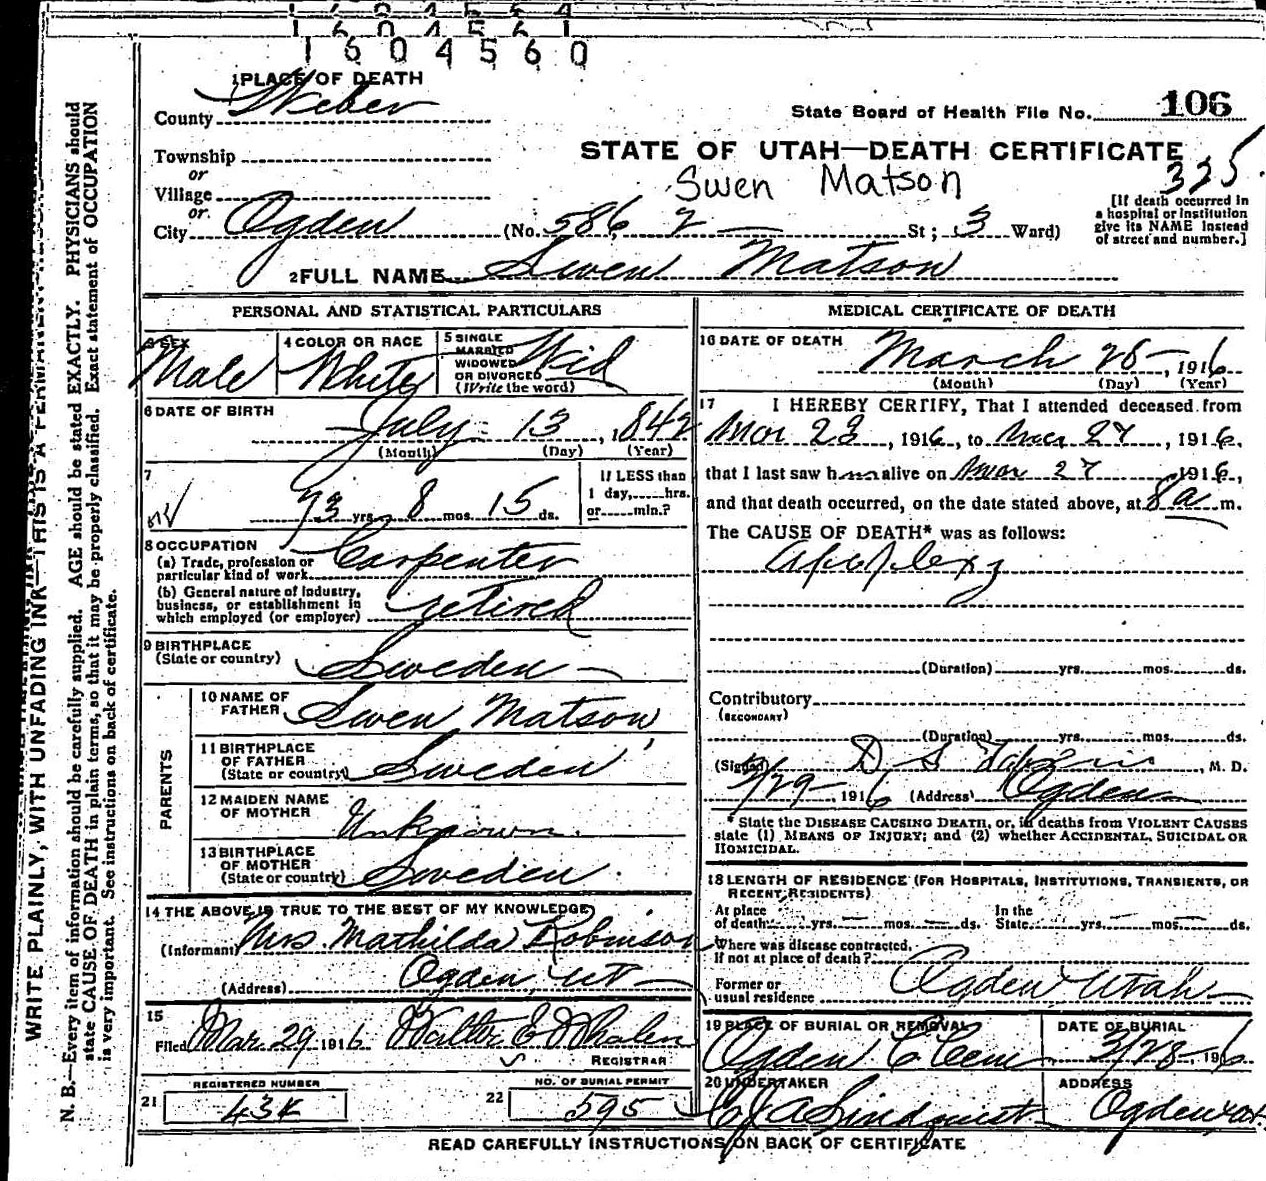 1604561
1604560
1 PLACE OF DEATH
County Weber
State Board of Health File No. 106
Township
or
Village
or
City Ogden (No. 586 2 — St; 3 Ward)
STATE OF UTAH—DEATH CERTIFICATE
325
Swen Matson
[If death occurred in
a hospital or institution
give its NAME instead
of street and number.]
2 FULL NAME Swen Matson
PERSONAL AND STATISTICAL PARTICULARS
3 SEX
Male
4 COLOR OR RACE
White
5 SINGLE
MARRIED
WIDOWED
OR DIVORCED
(Write the word)
Wid
6 DATE OF BIRTH
July 13, 1842
(Month) (Day) (Year)
7
73 yrs. 8 mos. 15 ds.
If LESS than
1 day,......hrs.
or......min.?
8 OCCUPATION
(a) Trade, profession or
particular kind of work Carpenter
(b) General nature of industry,
business, or establishment in
which employed (or employer) retired
9 BIRTHPLACE
(State or country) Sweden
PARENTS
10 NAME OF
FATHER Swen Matson
11 BIRTHPLACE
OF FATHER
(State or country) Sweden
12 MAIDEN NAME
OF MOTHER
Unknown.
13 BIRTHPLACE
OF MOTHER
(State or country) Sweden.
14 THE ABOVE IS TRUE TO THE BEST OF MY KNOWLEDGE
(Informant) Mrs. Mathilda Robinson
(Address) Ogden, Ut
15
Filed Mar. 29 1916 Walter E Whalen
REGISTRAR
REGISTERED NUMBER
21
NO. OF BURIAL PERMIT
22 595
MEDICAL CERTIFICATE OF DEATH
16 DATE OF DEATH
March 28, 1916
(Month) (Day) (Year)
17 I HEREBY CERTIFY, That I attended deceased from
Mar 23, 1916, to Mar 27, 1916,
that I last saw him alive on Mar 27 1916,
and that death occurred, on the date stated above, at 8 a m.
The CAUSE OF DEATH* was as follows:
Apoplexy
(Duration) yrs. mos. ds.
Contributory
(SECONDARY)
(Duration) yrs. mos. ds.
(Signed) D S , M. D.
3/29, 1916 (Address) Ogden
* State the DISEASE CAUSING DEATH, or, in deaths from VIOLENT CAUSES
state (1) MEANS OF INJURY; and (2) whether ACCIDENTAL, SUICIDAL OR
HOMICIDAL.
18 LENGTH OF RESIDENCE (FOR HOSPITALS, INSTITUTIONS, TRANSIENTS, OR
RECENT RESIDENTS)
At place
of death yrs. — mos. — ds.
In the
State yrs. — mos. — ds.
Where was disease contracted,
if not at place of death?
Former or
usual residence Ogden Utah
19 PLACE OF BURIAL OR REMOVAL
Ogden C Cem
DATE OF BURIAL
3/28 1916
20 UNDERTAKER
C J A Lindquist
ADDRESS
Ogden Ut.
READ CAREFULLY INSTRUCTIONS ON BACK OF CERTIFICATE
WRITE PLAINLY, WITH UNFADING INK—THIS IS A PERMANENT
N. B.—Every item of information should be carefully supplied. AGE should be stated EXACTLY. PHYSICIANS should
state CAUSE OF DEATH in plain terms, so that it may be properly classified. Exact statement of OCCUPATION
is very important. See instructions on back of certificate.